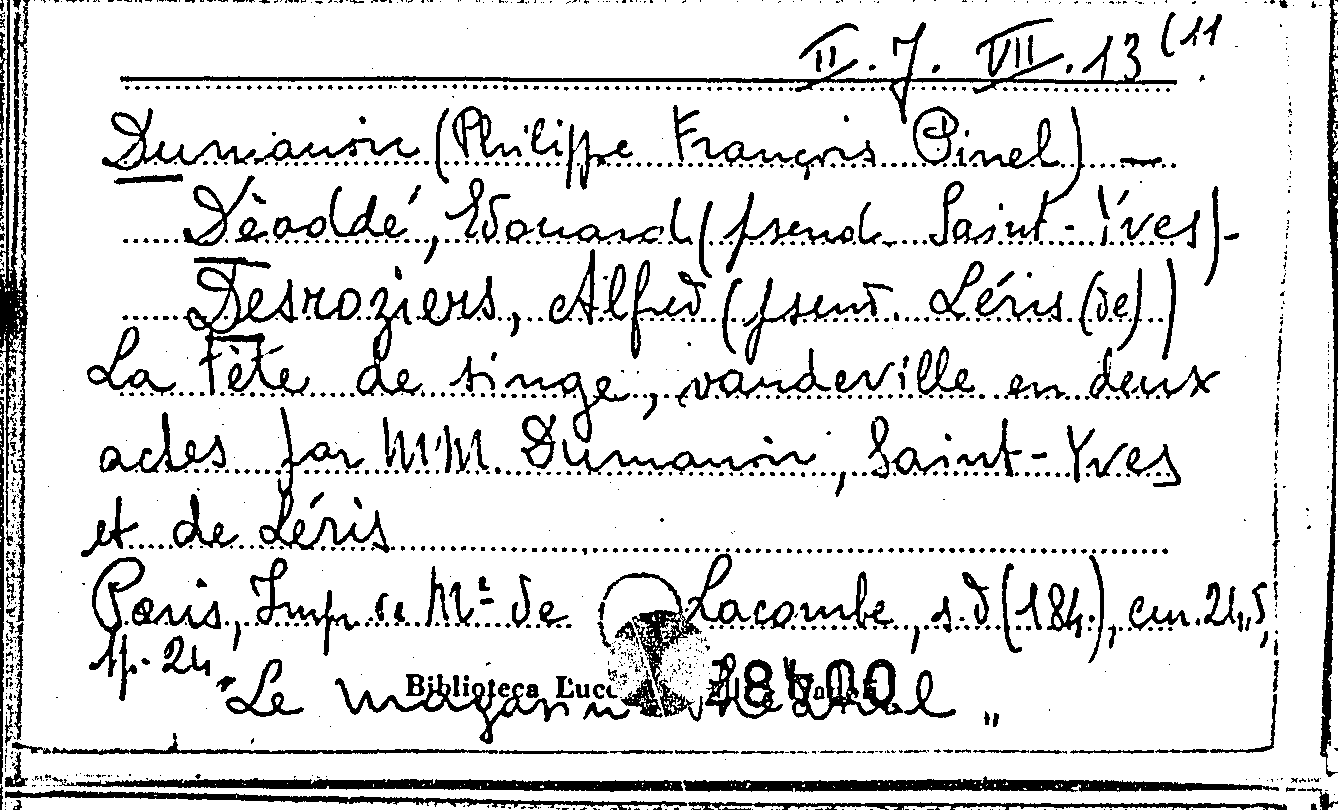 II. 7. VII. 13 (11
Dumanoir (Philippe François Pinel) —
Dèaddé, Edouard (pseud. Saint-Yves) -
Desroziers, Alfred (pseud. Léris (de))
La tête de singe, vaudeville en deux
actes par MM. Dumanoir, Saint-Yves
et de Léris
Paris, Imp. de Me de Lacombe, s.d (184.), cm. 24,5,
p. 24
"Le magasin théatral"
Biblioteca